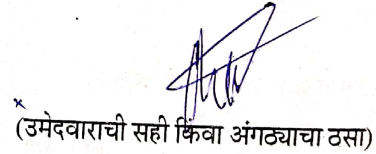 (उमेदवाराची सही किंवा अंगठ्याचा ठसा)